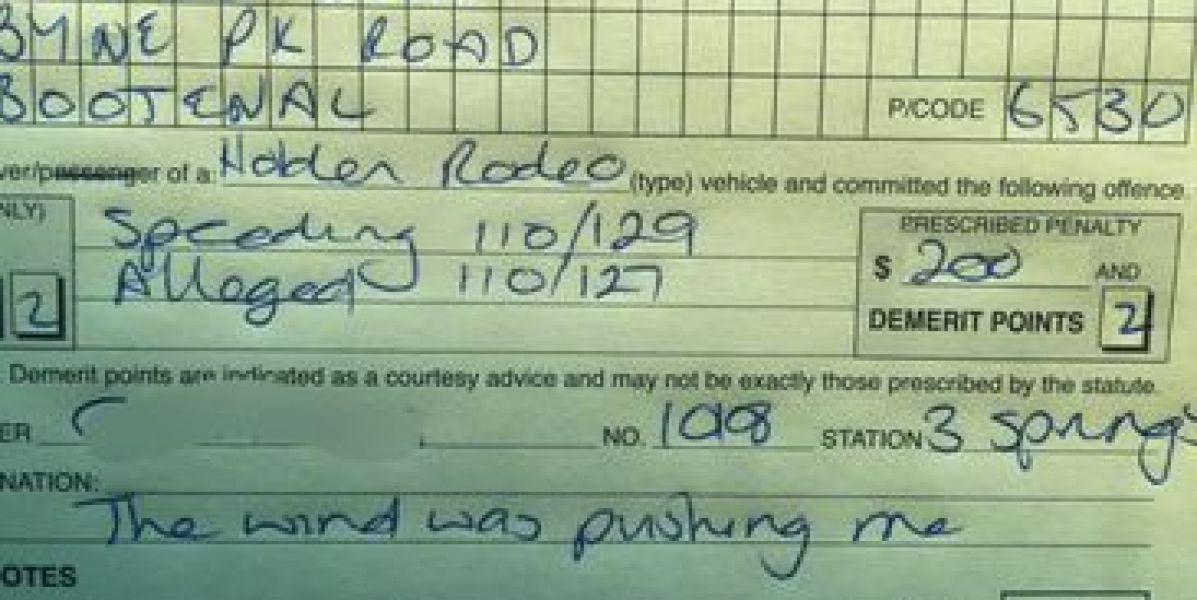 BYNE PK ROAD
BOOTENAL P/CODE 6530
ver/passenger of a: Holden Rodeo (type) vehicle and committed the following offence
NLY) Speeding 110/129 PRESCRIBED PENALTY
Alleged 110/127 $ 200 AND
2 DEMERIT POINTS 2
Demerit points are indicated as a courtesy advice and may not be exactly those prescribed by the statute.
ER NO. 1098 STATION 3 Springs
NATION:
The wind was pushing me
OTES